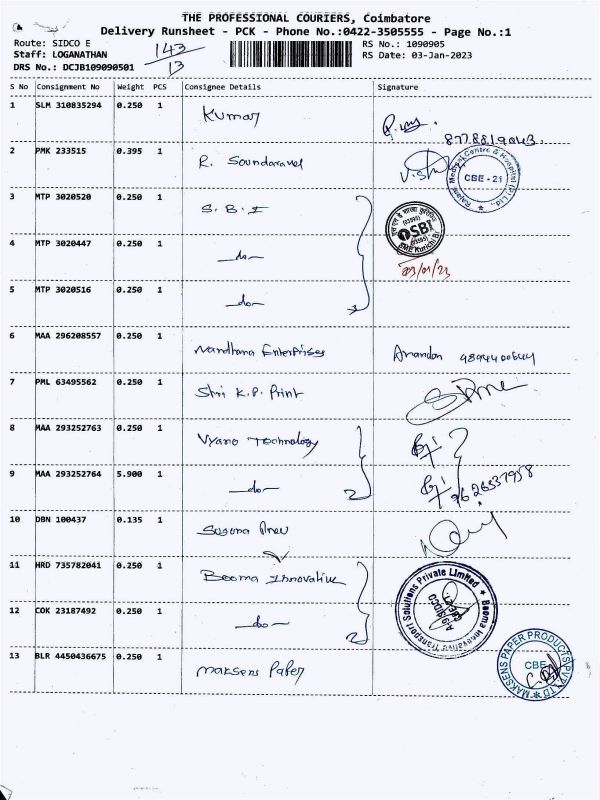 THE PROFESSIONAL COURIERS, Coimbatore
Delivery Runsheet - PCK - Phone No.:0422-3505555 - Page No.:1
Route: SIDCO E
Staff: LOGANATHAN
DRS No.: DCJB109090501
143
13
RS No.: 1090905
RS Date: 03-Jan-2023
S No Consignment No Weight PCS Consignee Details Signature
1 SLM 310835294 0.250 1 Kumar
8778819043.
2 PMK 233515 0.395 1 R. Soundaravel
CBE - 21
3 MTP 3020520 0.250 1 S. B. I
SBI
SME Kurichi Br
4 MTP 3020447 0.250 1 —do—
03/01/23
5 MTP 3020516 0.250 1 —do—
6 MAA 296208557 0.250 1 Nandhana Enterprises Anandan
7 PML 63495562 0.250 1 Shri K.P. Print
8 MAA 293252763 0.250 1 Vyano Technology
9 MAA 293252764 5.900 1 —do— 9626537958
10 DBN 100437 0.135 1
11 HRD 735782041 0.250 1 Booma Innovative
Booma Innovative Transport Solutions Private Limited
12 COK 23187492 0.250 1 —do—
13 BLR 4450436675 0.250 1 Maksens Paper
MAKSENS PAPER PRODUCTS PVT LTD
CBE